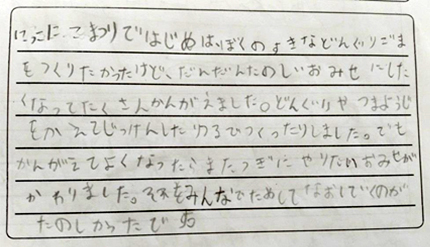 にっこにこまつりではじめはぼくのすきなどんぐりごま
をつくりたかったけどくだんだんたのしいおみせにした
くなってたくさんかんがえました。どんぐりやつまようじ
をかえてじっけんしたりつくったりしました。でも
かんがえてよくなったらまたつぎにやりたいおみせが
かわりました。それをみんなでためしてなおしていくのが
たのしかったです